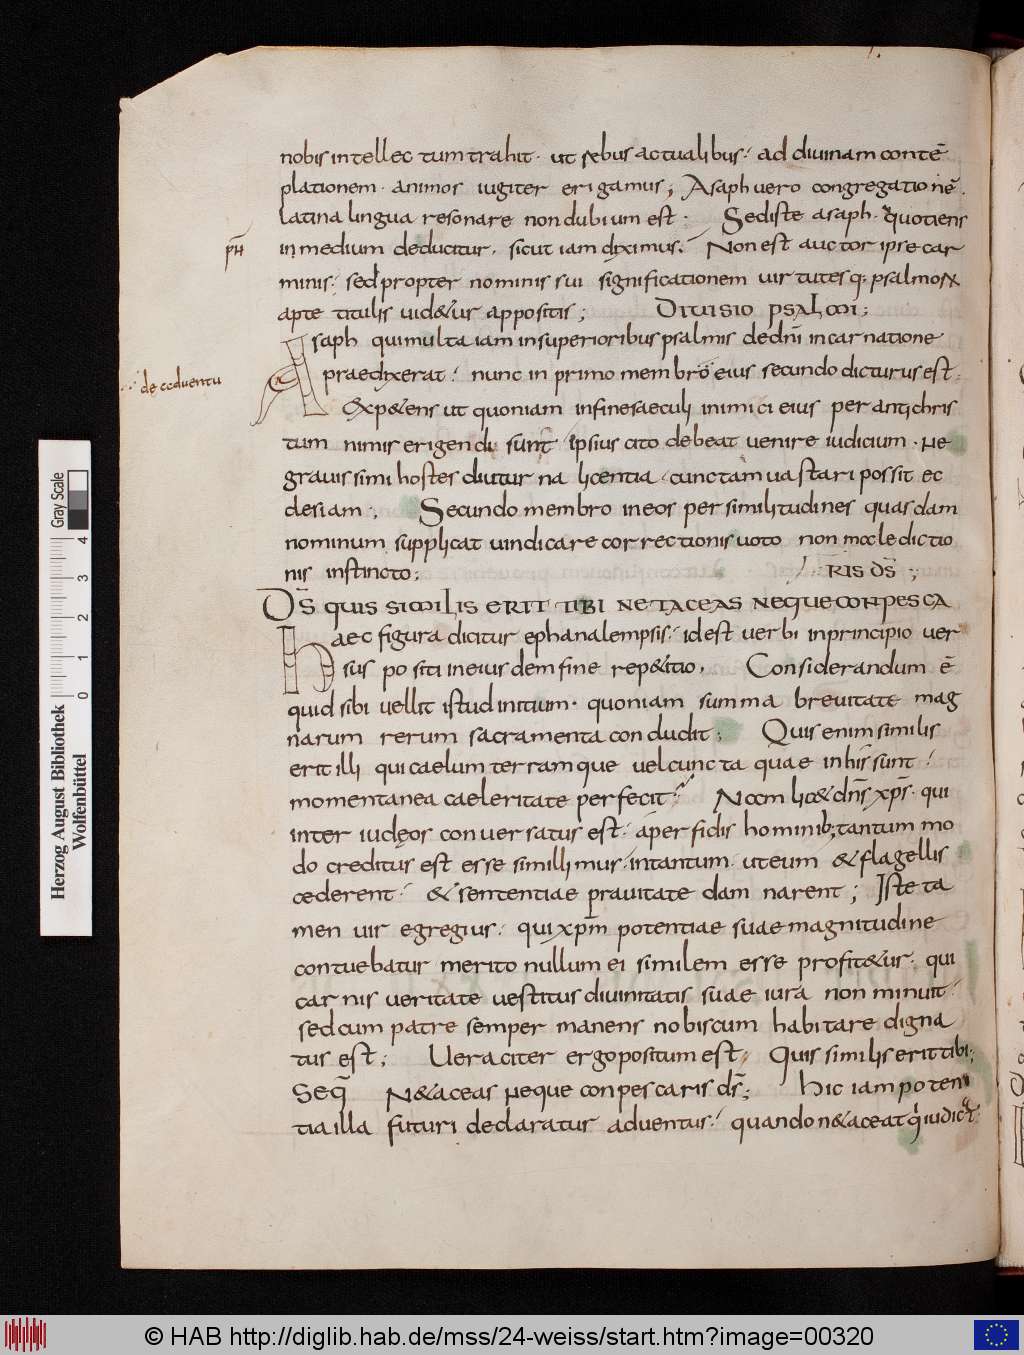 nobis intellectum trahit. ut rebus actualibus. ad diuinam contē
plationem. animos iugiter erigamus; Asaph uero congregationē.
latina lingua resonare non dubium est. Sed iste asaph. quotiens
in medium deducitur. sicut iam diximus. Non est auctor ipse car
minis. sed propter nominis sui significationem uirtutesq; psalmoꝝ
apte titulis uid&ur appositis; DIUISIO PSALMI;
de aduentu
Asaph qui multa iam in superioribus psalmis de dn̄i incarnatione
praedixerat. nunc in primo membro eius secundo dicturus est.
Exp&ens ut quoniam in fine saeculi inimici eius per antichris
tum nimis erigendi sunt ipsius cito debeat uenire iudicium. ne
grauissimi hostes diuturna licentia. cunctam uastari possit ec
clesiam. Secundo membro in eos per similitudines quasdam
nominum supplicat uindicare correctionis uoto non maledictio
nis instincto; RIS DS̄;
DS̄ QUIS SIMILIS ERIT TIBI NE TACEAS NEQUE CONPESCA
Haec figura dicitur ephanalempsis. id est uerbi in principio uer
sus positi in eiusdem fine rep&itio. Considerandum ē
quid sibi uellit istud initium. quoniam summa breuitate mag
narum rerum sacramenta concludit; Quis enim similis
erit illi qui caelum terramque uel cuncta quae in his sunt.
momentanea caeleritate perfecit. Nam lic& dn̄s xp̄s. qui
inter iudęos conuersatus est. a perfidis hominib; tantum mo
do creditus est esse simillimus. in tantum. ut eum & flagellis
cederent. & sententiae prauitate damnarent; Iste ta
men uir egregius. qui xp̄m potentiae suae magnitudine
contuebatur merito nullum ei similem esse profit&ur. qui
carnis ueritate uestitus diuinitatis suae iura non minuit.
sed cum patre semper manens nobiscum habitare digna
tus est; Ueraciter ergo positum est. Quis similis erit tibi;
Seq̄ N& aceas neque conpescaris ds̄; Hic iam poten
tia illa futuri declaratur aduentus. quando n& aceat
Herzog August Bibliothek
Wolfenbüttel
0 1 2 3 4
Gray Scale
© HAB http://diglib.hab.de/mss/24-weiss/start.htm?image=00320